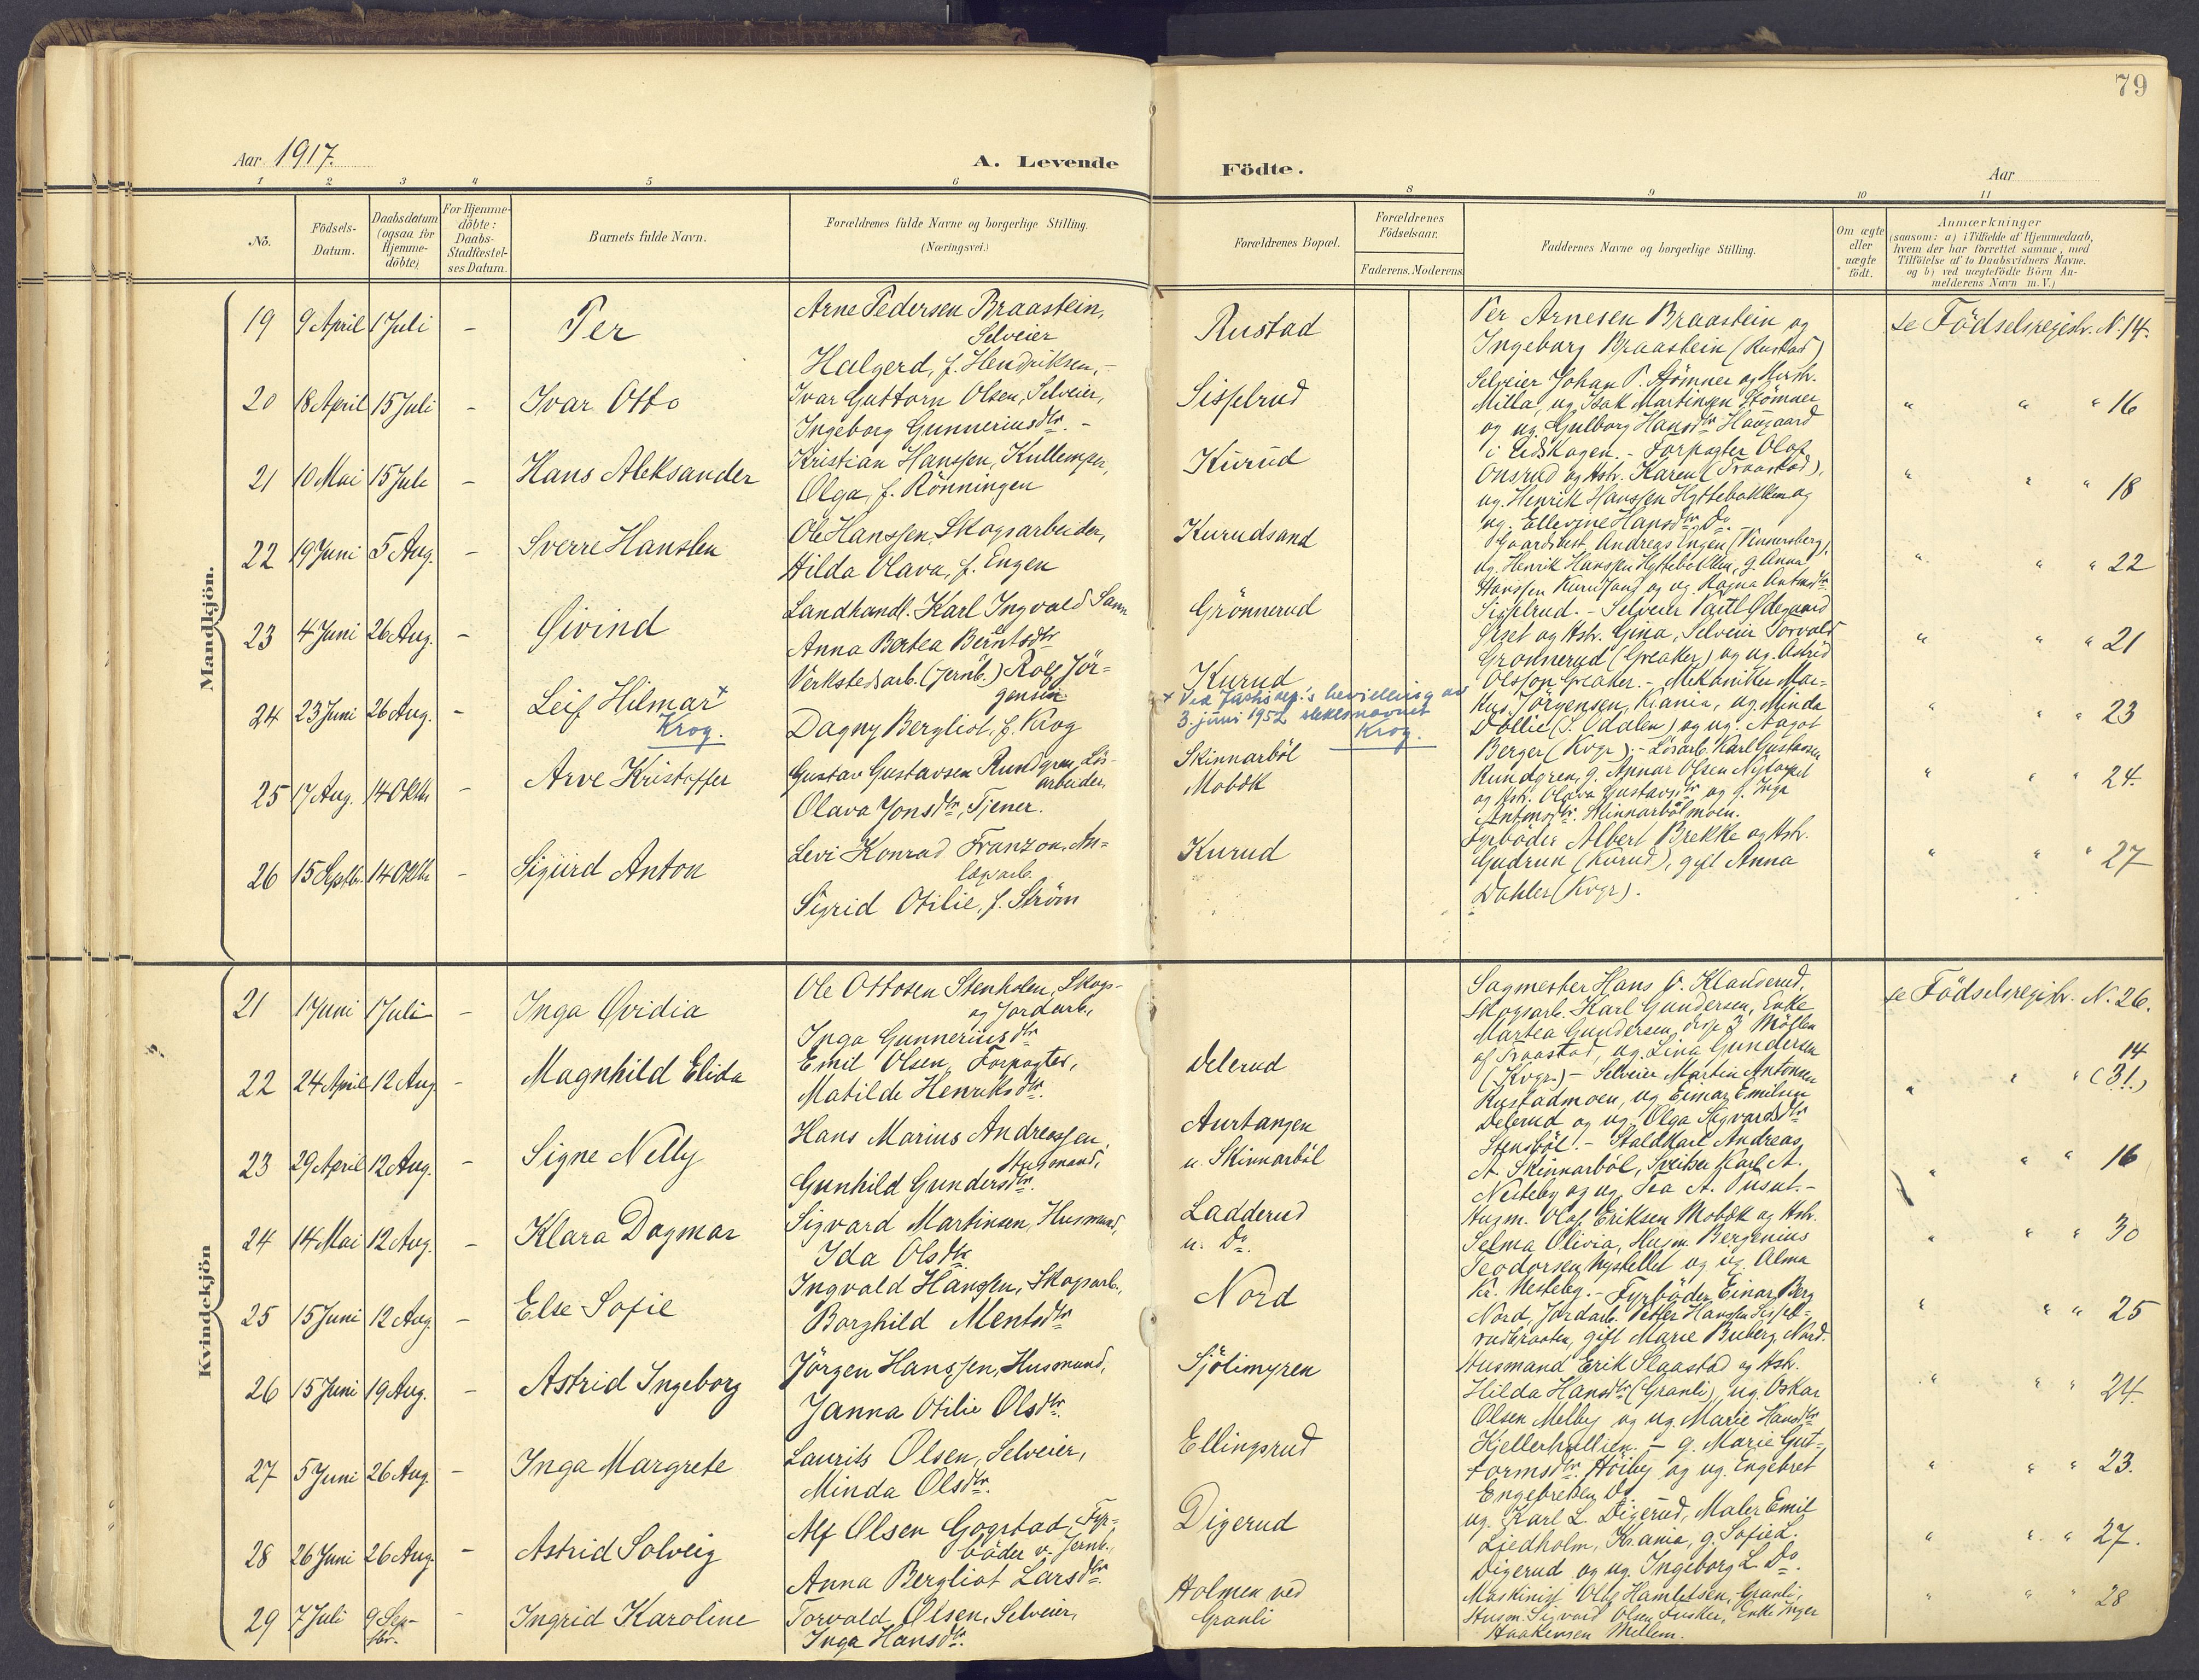 79
Aar 1917.
A. Levende Födte.
Aar
1 2 3 4 5 6 8 9 10 11
No.
Födsels-Datum.
Daabsdatum (ogsaa for Hjemme-döbte)
For Hjemme-döbte: Daabs-Stadfæstel-ses Datum.
Barnets fulde Navn.
Forældrenes fulde Navne og borgerlige Stilling. (Næringsvei.)
Forældrenes Bopæl.
Forældrenes Födselsaar.
Faderens. Moderens
Faddernes Navne og borgerlige Stilling.
Om ægte eller uægte födt.
Anmærkninger
(saasom: a) i Tilfælde af Hjemmedaab,
hvem der har forrettet samme, med
Tilföielse af to Daabsvidners Navne.
og b) ved uægtefödte Börn An-
melderens Navn m. V.)
Mandkjön.
19 9 April 1 Juli - Per
Arne Pedersen Braastein,
Selveier
Halgerd, f. Hendriksen, -
Rustad
Per Arnesen Braastein og
Ingeborg Braastein (Rustad)
se Födselsregistr. N. 14.
20 18 April 15 Juli - Ivar Otto
Ivar Guttorm Olsen, Selveier,
Ingeborg Gunneriusdtr. -
Sisselrud
Selveier Johan P. Stömner og Hustr.
Milla, ug. Isak Martinsen Stömner
og ug. Gulborg Hansdtr Haugaard
i Eidskogen. - Forpagter Olof
" " " 16
21 10 Mai 15 Juli - Hans Aleksander
Kristian Hanssen,
Olga, f. Rönningen
Kurud
Onsrud og Hstr. Karen (Traastad),
ug. Henrik Hanssen Hyttebakken og
ug. Ellevine Hansdtr Do.
" " " 18
22 19 Juni 5 Aug. - Sverre Hanslen
Ole Hanssen, Skogsarbeider,
Hilda Olava, f. Engen
Kurudsand
Gaardsbest. Andreas Engen (Vinnersberg),
ug. Henrik Hanssen Hyttebakken, g. Anna
Hanssen Kurudsand og ug. Ragna Antonsdtr
Sisselrud. - Selveier Paul Ødegaard
" " " 22
23 4 Juni 26 Aug. - Øivind
Landhandl. Karl Ingvald Sann
Anna Bertea Berntsdtr
Grönnerud
og Hstr. Gina, Selveier Torvald
Grönnerud (Greaker) og ug. Astrid
Olsson Greaker. - Mekaniker Mar-
" " " 21
24 23 Juni 26 Aug. - Leif Hilmar +
Krog.
Verkstedsarb. (Jernb.) Rolf Jör-
gensen
Dagny Bergliot, f. Krog
Kurud
+ Ved Justisdep.'s bevilling av
3. juni 1952 slektsnavnet
Krog.
kus Jörgensen, Kr.ania, ug. Minda
Dollie (S. Odalen) og ug. Aagot
Berger (Kvgr). - Lösarb. Karl Gustavsen
" " " 23
25 17 Aug. 14 Oktbr - Arve Kristoffer
Gustav Gustavsen Rundgren, Lös-
arbeider,
Olava Jonsdtr, Tjener.
Skinnarböl
Mobök
Rundgren, g. Olsen Nytorpet
og Hstr. Olava Gustavsdtr og f. Inga
Antonsdtr. Skinnarbölmoen.
" " " 24.
26 15 Septb. 14 Oktbr - Sigurd Anton
Levi Konrad Franzon, An-
lægsarb.
Sigrid Otilie, f. Ström
Kurud
Fyrböder Albert Brekke og Hstr.
Gudrun (Kurud), gift Anna
Dahler (Kvgr).
" " " 27
Kvindekjön
21 1 Juni 1 Juli - Inga Ovidia
Ole Ottosen Stenholen, Skogs-
og Jordarb.,
Inga Gunneriusdtr
Sagmester Hans O. Klanderud,
Skogsarb. Karl Gundersen, Enke
Martea Gundersen, disse 3 Möglen
af Traastad, ug. Lina Gundersen
se Födselsregistr. N. 26.
22 24 April 12 Aug. - Magnhild Elida
Emil Olsen, Forpagter,
Matilde Henriksdtr.
Delerud
(Kvgr.) - Selveier Martin Antonsen
Rustadmoen, ug. Einar Emilsen
Delerud og ug. Olga Sigvardsdtr
14
" " " (31.)
23 29 April 12 Aug. - Signe Nelly
Hans Marius Andreassen,
Husmand,
Gunhild Gundersdtr.
Aurtangen
u. Skinnarböl
Stensböl. - Staldkarl Andreas
A. Skinnarböl, Sveitser Karl A.
Nesteby og ug. Tea A. -
" " " 16
24 14 Mai 12 Aug. - Klara Dagmar
Sigvard Martinsen, Husmand,
Ida Olsdtr.
Ladderud
u. Do.
Husm. Olof Eriksen Mobök og Hstr.
Selma Olivia, Husm. Bergenius
Teodorsen Nystellet og ug. Alma
" " " 30
25 15 Juni 12 Aug. - Else Sofie
Ingvald Hanssen, Skogsarb.,
Borghild Mentsdtr
Nord
Kr. Nesteby. - Fyrböder Einar Berg
Nord, Jordarb. Petter Hanssen Sissel-
rudbraaten, gift Marie Buberg, Nord.
" " " 25
26 15 Juni 19 Aug. - Astrid Ingeborg
Jörgen Hanssen, Husmand,
Janna Otilie Olsdtr.
Sjölimyren
Husmand Erik Slaastad og Hstr.
Hilda Hansdtr (Granli), ug. Oskar
Olsen Melby og ug. Marie Hansdtr
" " " 24.
27 5 Juni 26 Aug. - Inga Margrete
Laurits Olsen, Selveier,
Minda Olsdtr.
Ellingsrud
- g. Marie Gut-
tormsdtr. Höiby og ug. Engebret
Engebretsen Do
" " " 23.
28 26 Juni 26 Aug. - Astrid Solveig
Alf Olsen Gogstad, Fyr-
böder v. Jernb.,
Anna Bergliot Larsdtr.
Digerud
ug. Karl L. Digerud, Maler Emil
Liedholm, Kr.ania, g. Sofie d.
Digerud og ug. Ingeborg L. Do.
" " " 27.
29 7 Juli 9 Sep-tbr. - Ingrid Karoline
Torvald Olsen, Selveier,
Inga Hansdtr.
Holmen ved
Granli
Maskinist Olb. Hamletsen, Granli,
Husm. Sigvard Olsen Fusker, Enke Inger
Haakensen Mellem.
" " " 28